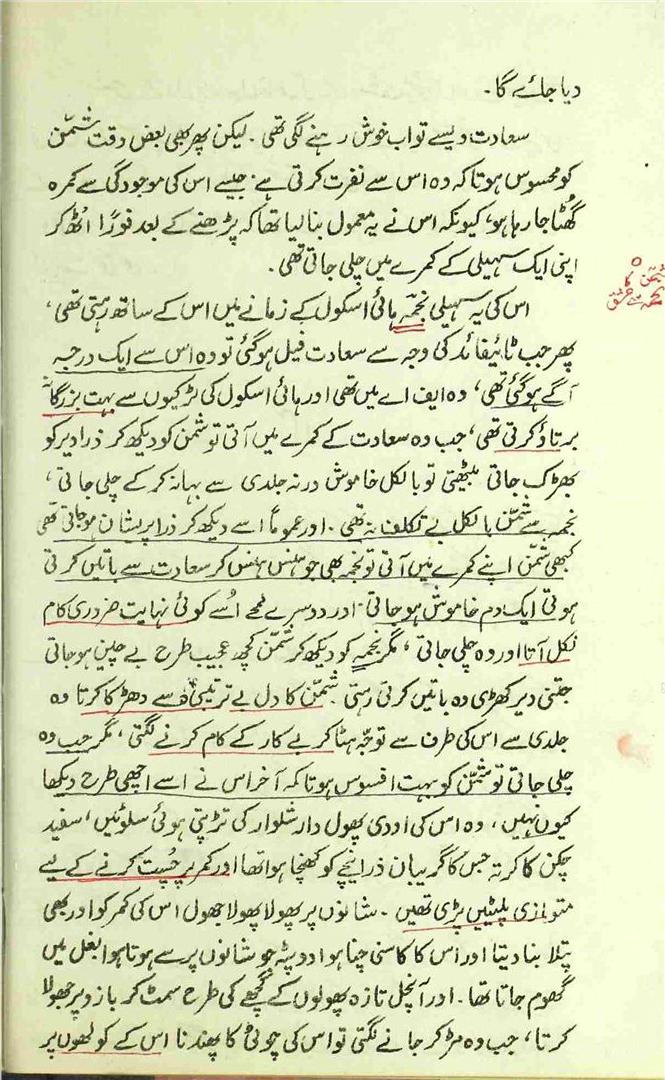 دیا جائے گا۔
سعادت ویسے تو اب خوش رہنے لگی تھی۔ لیکن پھر بھی بعض دقت شمّن
کو محسوس ہوتا کہ وہ اس سے نفرت کرتی ہے۔ جیسے اس کی موجودگی سے کمرہ
گھُٹا جا رہا ہو، کیونکہ اس نے یہ معمول بنا لیا تھا کہ پڑھنے کے بعد فوراً اٹھ کر
اپنی ایک سہیلی کے کمرے میں چلی جاتی تھی۔
اس کی یہ سہیلی نجمّہ ہائی اسکول کے زمانے میں اس کے ساتھ رہتی تھی،
پھر جب ٹائیفائد کی وجہ سے سعادت فیل ہو گئی تو وہ اس سے ایک درجہ
آگے ہو گئی تھی، وہ ایف اے میں تھی اور ہائی اسکول کی لڑکیوں سے بہت بزرگانہ
برتاؤ کرتی تھی، جب وہ سعادت کے کمرے میں آتی تو شمن کو دیکھ کر ذرا دیر کو
بھڑک جاتی بیٹھتی تو بالکل خاموش درنہ جلدی سے بہانہ کر کے چلی جاتی،
نجمہ سے شمّن بالکل بے تکلف نہ تھی۔ اور عموماً اسے دیکھ کر ذرا پریشان ہو جاتی تھی
کبھی شمّن اپنے کمرے میں آتی تو نجمہ بھی جو ہنس ہنس کر سعادت سے باتیں کرتی
ہوتی ایک دم خاموش ہو جاتی۔ اور دوسرے لمحے اُسے کوئی نہایت ضروری کام
نکل آتا اور وہ چلی جاتی، مگر نجمہ کو دیکھ کر شمّن کچھ عجیب طرح بے چین ہو جاتی
جتنی دیر کھڑی وہ باتیں کرتی رہتی۔ شمّن کا دل بے ترتیبی سے دھڑکا کرتا وہ
جلدی سے اس کی طرف سے توجّہ ہٹا کر بے کار کے کام کرنے لگتی، مگر جب وہ
چلی جاتی تو شمّن کو بہت افسوس ہوتا کہ آخر اس نے اسے اچھی طرح دیکھا
کیوں نہیں، وہ اس کی اودی پھول دار شلوار کی تڑپتی ہوئی سلوٹیں، سفید
چکن کا کرتہ جس کا گریبان ذرا نیچے کو کھنچا ہوا تھا اور کمر پر چُست کرنے کے لیے
متوازی پلیٹیں پڑی تھیں۔ شانوں پر پھولا پھولا جھول اس کی کمر کو اور بھی
پتلا بنا دیتا اور اس کا کاسنی چنا ہوا دوپٹہ جو شانوں پر سے ہوتا ہوا بغل میں
گھوم جاتا تھا۔ اور آنچل تازہ پھولوں کے گچھے کی طرح سمٹ کر بازو پر جھولا
کرتا، جب وہ مڑ کر جانے لگتی تو اس کی چوٹی کا پھندنا اس کے کولھوں پر
شمّن کا
نجمہ سے عشق